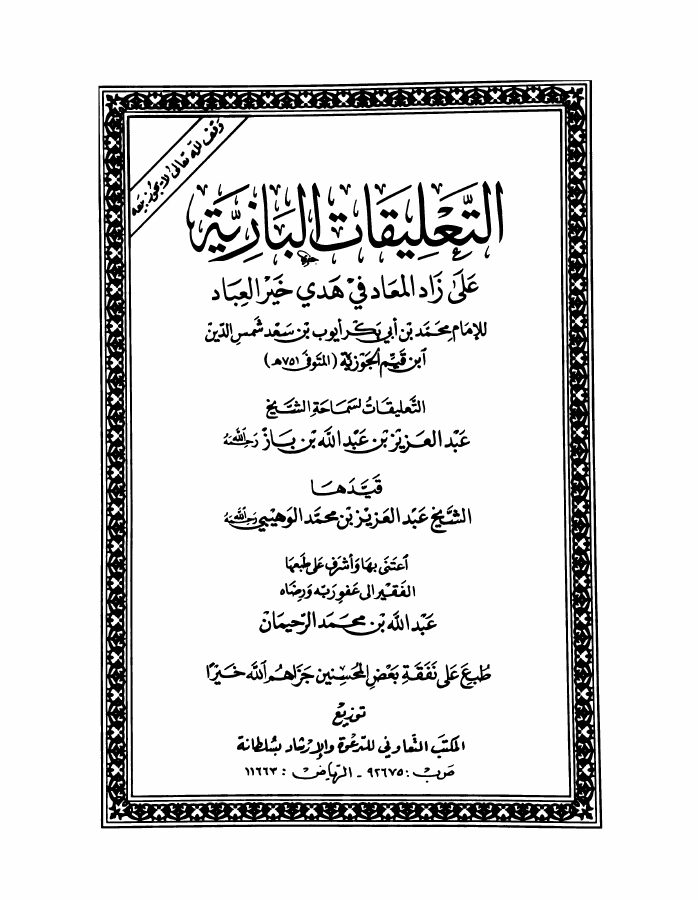 وقف لله تعالى لا يجوز بيعه
التَّعْلِيقَاتُ البَازِيَّة
عَلَى زَادِ المَعَادِ فِي هَدْيِ خَيْرِ العِبَاد
للإمام محمد بن أبي بكر أيوب بن سعد شمس الدين
ابن قيم الجوزية (المتوفى ٧٥١هـ)
التعليقات لسماحة الشيخ
عبد العزيز بن عبد الله بن باز رحمه الله
قيّدها
الشيخ عبد العزيز بن محمد الوهيبي رحمه الله
اعتنى بها وأشرف على طبعها
الفقير إلى عفو ربه ورضاه
عبد الله بن محمد الرحيمان
طبع على نفقة بعض المحسنين جزاهم الله خيرًا
توزيع
المكتب التعاوني للدعوة والإرشاد بسلطانة
ص ب : ٩٢٦٧٥ - الرياض : ١١٦٦٣